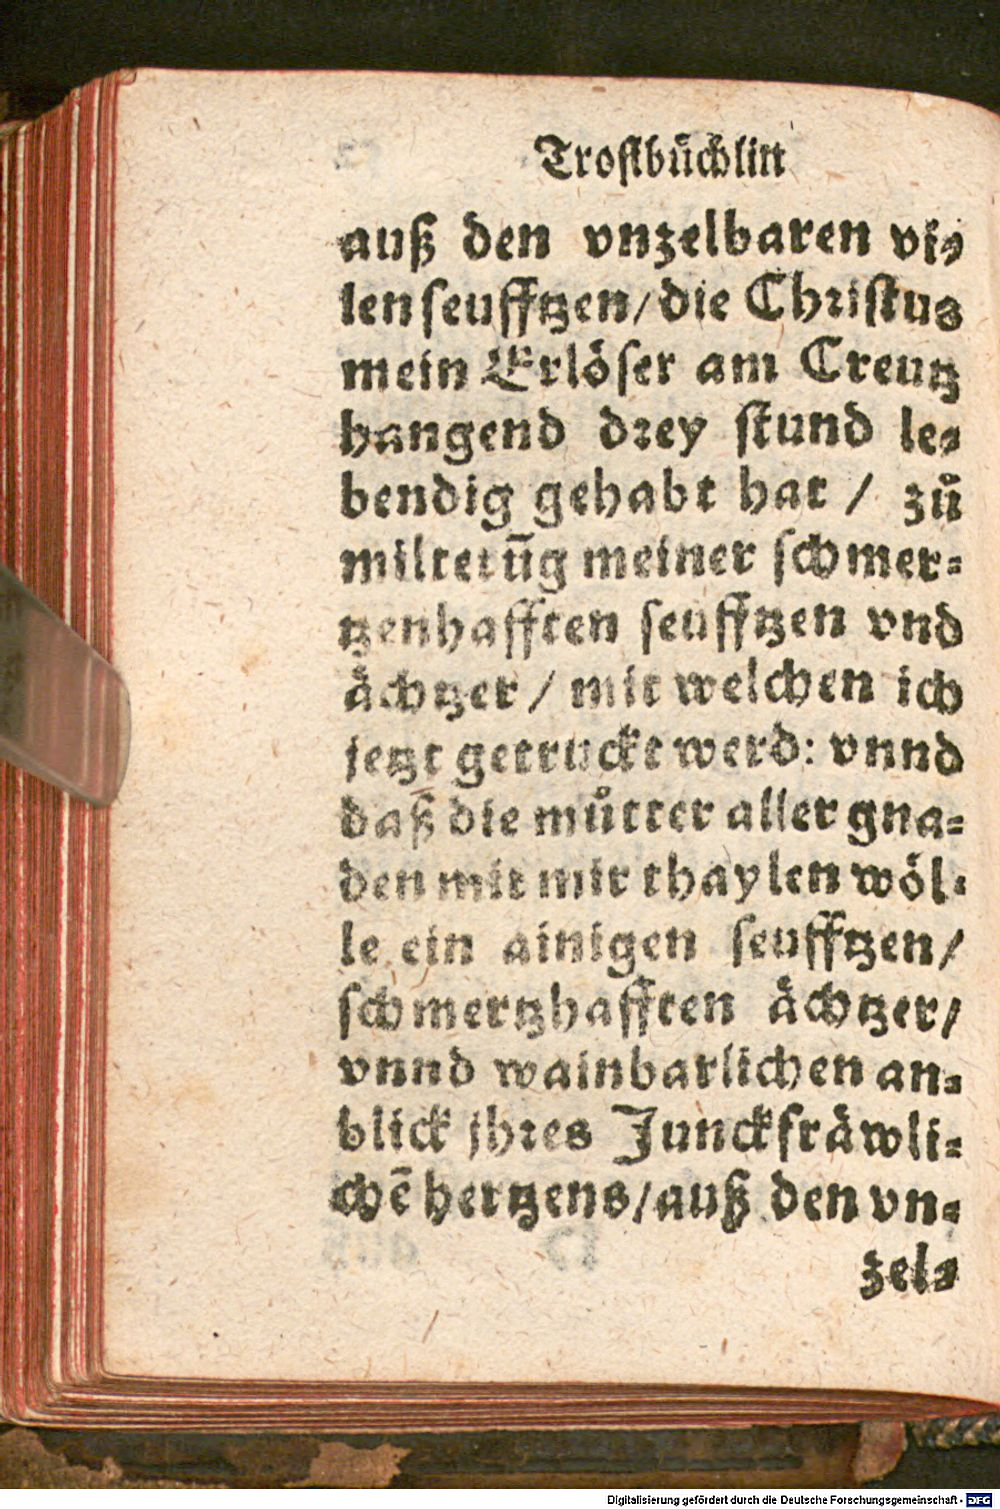 Trostbuͤchlin
auß den vnzelbaren vi-
len seufftzen/ die Christus
mein Erloͤser am Creutz
hangend drey stund le-
bendig gehabt hat / zuͦ
milterūg meiner schmer-
tzenhafften seufftzen vnd
aͤchtzer / mit welchen ich
jetzt getruckt werd: vnnd
daß die muͦtter aller gna-
den mit mir thaylen woͤl-
le ein ainigen seufftzen/
schmertzhafften aͤchtzer/
vnnd wainbarlichen an-
blick jhres Junckfraͤwli-
chē hertzens/ auß den vn-
zel-
Digitalisierung gefördert durch die Deutsche Forschungsgemeinschaft - DFG